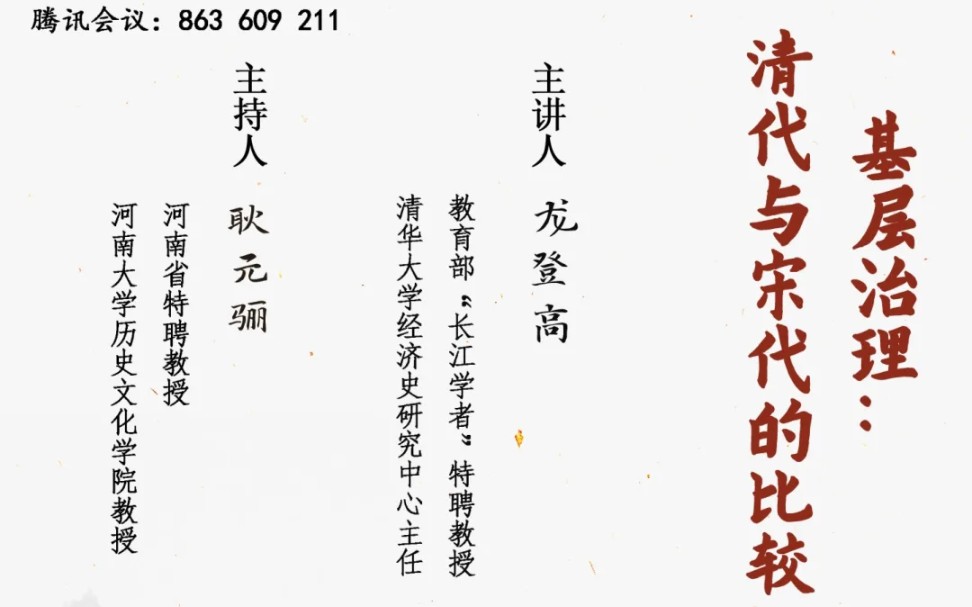 腾讯会议：863 609 211
基层治理：
清代与宋代的比较
主讲人 龙登高
教育部“长江学者”特聘教授
清华大学经济史研究中心主任
主持人 耿元骊
河南省特聘教授
河南大学历史文化学院教授